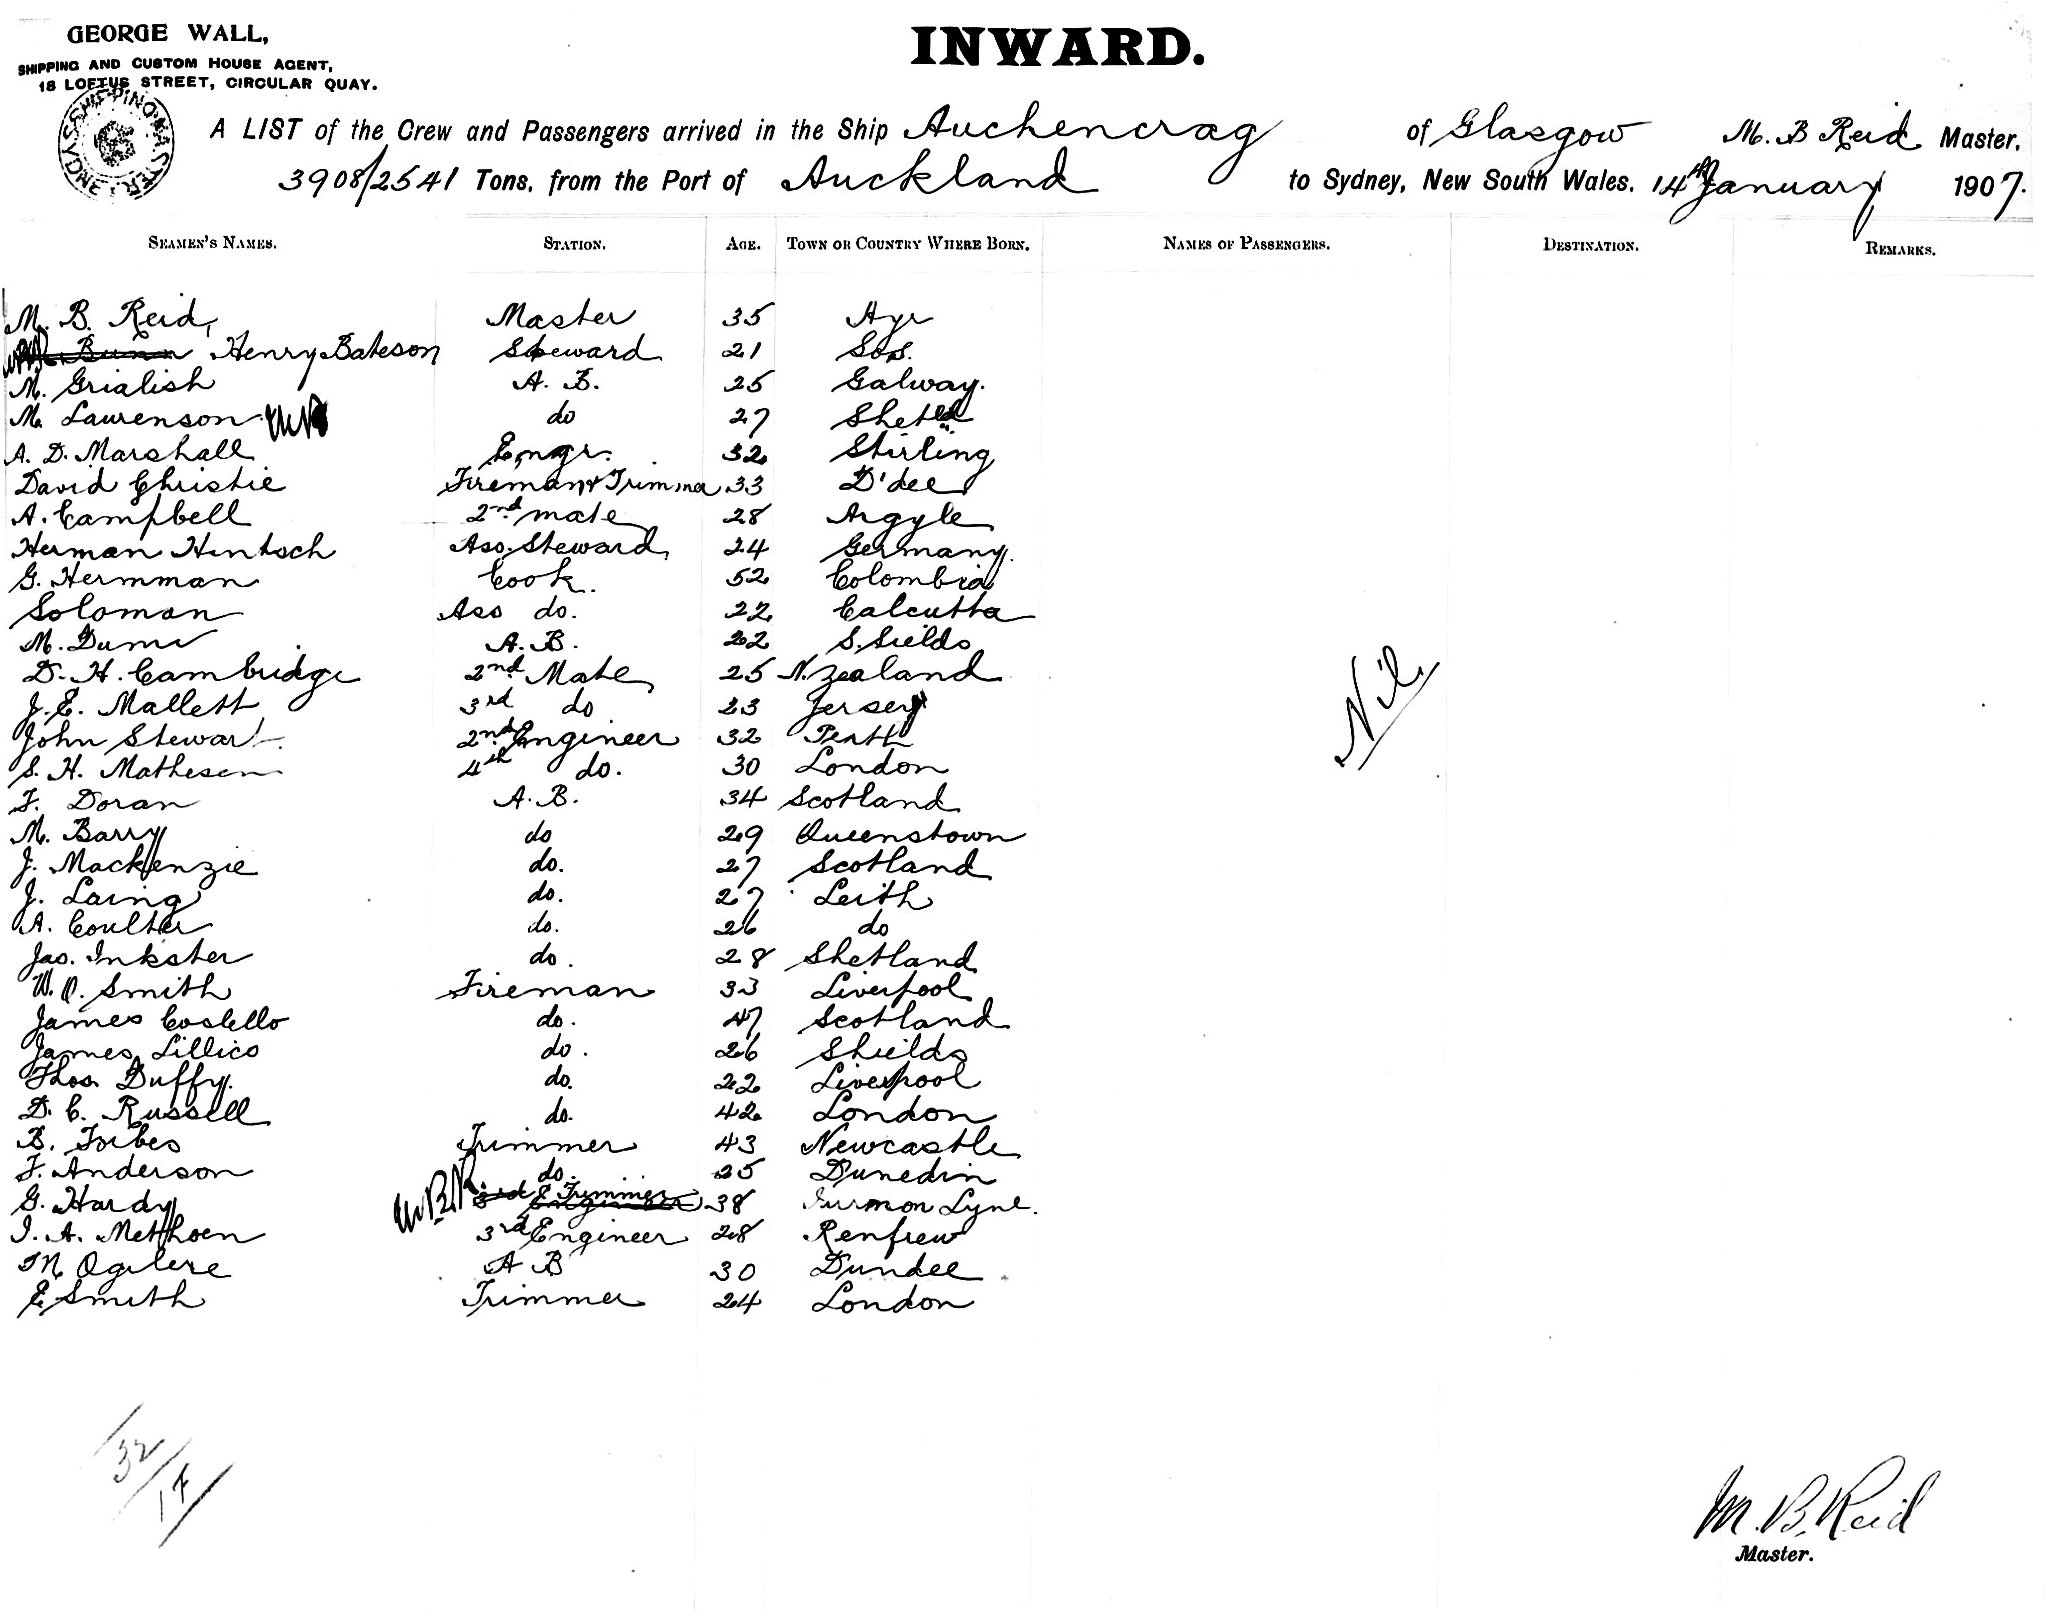 GEORGE WALL,
SHIPPING AND CUSTOM HOUSE AGENT,
18 LOFTUS STREET, CIRCULAR QUAY.
INWARD.
SHIPPING MASTER SYDNEY
A LIST of the Crew and Passengers arrived in the Ship Auchencrag of Glasgow M. B Reid Master.
3908/2541 Tons, from the Port of Auckland to Sydney, New South Wales. 14th January 1907.
SEAMEN'S NAMES. STATION. AGE. TOWN OR COUNTRY WHERE BORN. NAMES OF PASSENGERS. DESTINATION. REMARKS.
M. B. Reid, Master 35 Ayr
Bunn Henry Bateson Steward 21
M. Grialish A. B. 25 Galway.
M. Laurenson do 27
A. D. Marshall Engr. 32 Stirling
David Christie Fireman & Trimmer 33 D'dee
A. Campbell 2nd mate 28 Argyle
Herman Hintsch Ass. Steward 24 Germany.
G. Hermman Cook. 52 Colombia
Soloman Ass do. 22 Calcutta
M. A. B. 22 S. Sields
D. H. Cambridge 2nd Mate 25 N. Zealand
J. E. Mallett 3rd do 23 Jersey
John Stewart 2nd Engineer 32 Perth
S. H. Mathesen 4th do. 30 London
F. Doran A. B. 34 Scotland
M. Barry do 29 Queenstown
J. Mackenzie do. 27 Scotland
J. Laing do. 27 Leith
A. Coulter do. 26 do
Jas. Inkster do. 28 Shetland
W. O. Smith Fireman 33 Liverpool
James Costello do. 47 Scotland
James Lillico do. 26 Shields
Thos. Duffy. do. 22 Liverpool
D. C. Russell do. 42 London
B. Forbes Trimmer 43 Newcastle
F. Anderson do. 25 Dunedin
G. Hardy M.B.R. 3rd Engineer Trimmer 38 Lyne.
I. A. Methoen 3rd Engineer 28 Renfrew
M Ogilere A B 30 Dundee
E Smith Trimmer 24 London
Nil
32/17
M. B. Reid
Master.